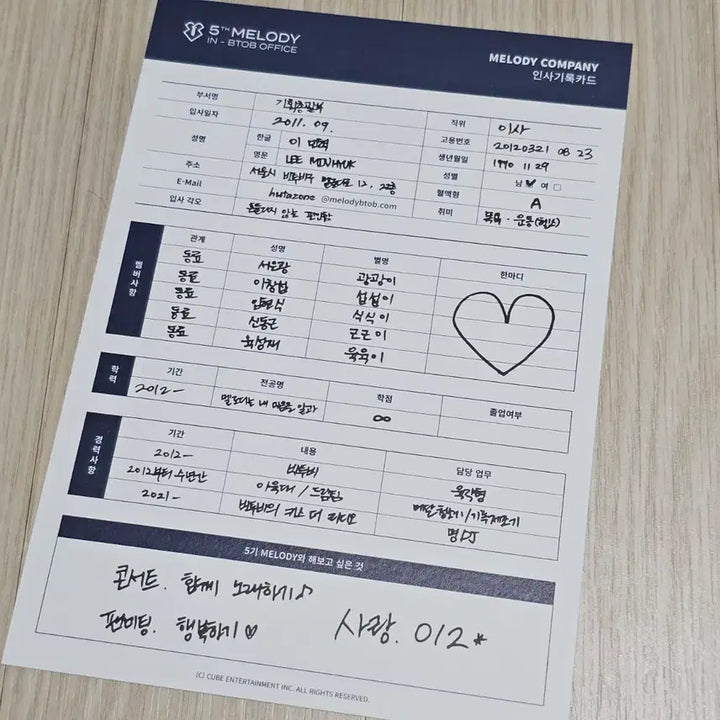 5TH MELODY
IN - BTOB OFFICE
MELODY COMPANY
인사기록카드
부서명 기획총괄부 직위 이사
입사일자 2011. 09. 고용번호 20120321 08 23
성명 한글 이 민혁 생년월일 1990 11 29
영문 LEE MINHYUK 성별 남 여
주소 서울시 비투비구 멜로디로 12, 2층 혈액형 A
E-Mail hutazone @melodybtob.com 취미 운동(헬스)
입사 각오 흔들리지 않는 편안함
멤버사항
관계 성명 별명 한마디
동료 서은광 광광이
동료 이창섭 섭섭이
동료 임현식 식식이
동료 신동근 근근이
동료 육성재 육육이
학력
기간 전공명 학점 졸업여부
2012- 멜로디는 내 마음을 알까 ∞
경력사항
기간 내용 담당 업무
2012- 비투비 육각형
2012부터 수년간 아육대 / 드림팀 메달 청소기/기록제조기
2021- 비투비의 키스 더 라디오 명DJ
5기 MELODY와 해보고 싶은 것
콘서트. 함께 노래하기♪
팬미팅. 행복하기♡ 사랑. 012*
(C) CUBE ENTERTAINMENT INC. ALL RIGHTS RESERVED.